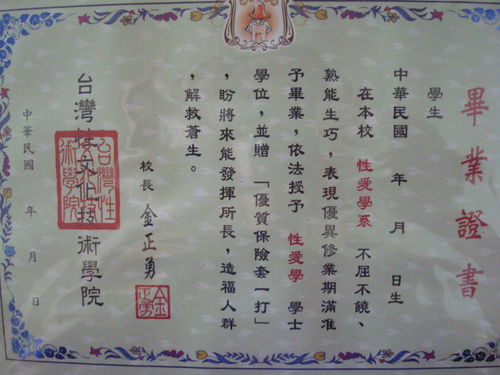 畢業證書
學生
中華民國 年 月 日生
在本校 性愛學系 不屈不撓、
熟能生巧,表現優異修業期滿准
予畢業,依法授予 性愛學 學士
學位,並贈 「優質保險套一打」
,盼將來能發揮所長,造福人群
,解救蒼生。
校長 金正勇
金正勇
台灣性文化技術學院
台灣性
術學院
中華民國 年 月 日